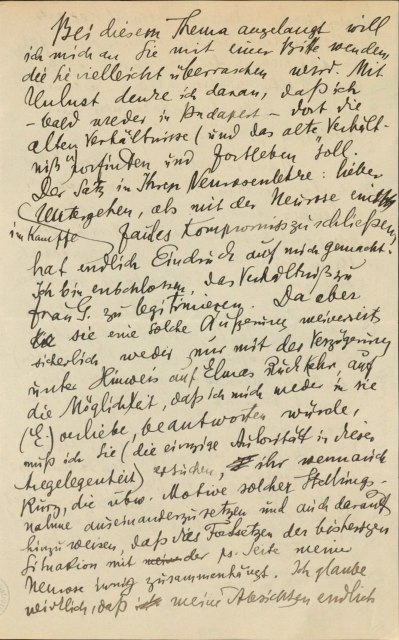 Bei diesem Thema angelangt will
ich mich an Sie mit einer Bitte wenden,
die Sie vielleicht überraschen wird. Mit
Unlust denke ich daran, daß ich
– bald wieder in Budapest – dort die
alten Verhältnisse (und das alte "Verhält-
niß") vorfinden und fortleben soll.
Der Satz in Ihrer Neurosenlehre: lieber
im Kampfe Untergehen, als mit der Neurose ein
faules Kompromiss zu schließen,
hat endlich Eindruck auf mich gemacht.
Ich bin entschlossen, das Verhältniß zu
Frau G. zu legitimieren. Da aber
sie eine solche Äußerung meinerseit
sicherlich wieder nur mit der Verzögerung
unter Hinweis auf Elmas Rückkehr, auf
die Möglichkeit, daß ich mich wieder in sie
(E.) verliebe, beantworten würde,
muß ich Sie (die einzige Autorität in dieser
Angelegenheit) ersuchen, ihr wenn auch
Kurz, die ubw. Motive solcher Stellung-
nahme auseinanderzusetzen und auch darauf
hinzuweisen, daß das Fortsetzen der bisherigen
Situation mit der ps. Seite meiner
Neurose innig zusammenhängt. Ich glaube
wirklich, daß meine Absichten endlich